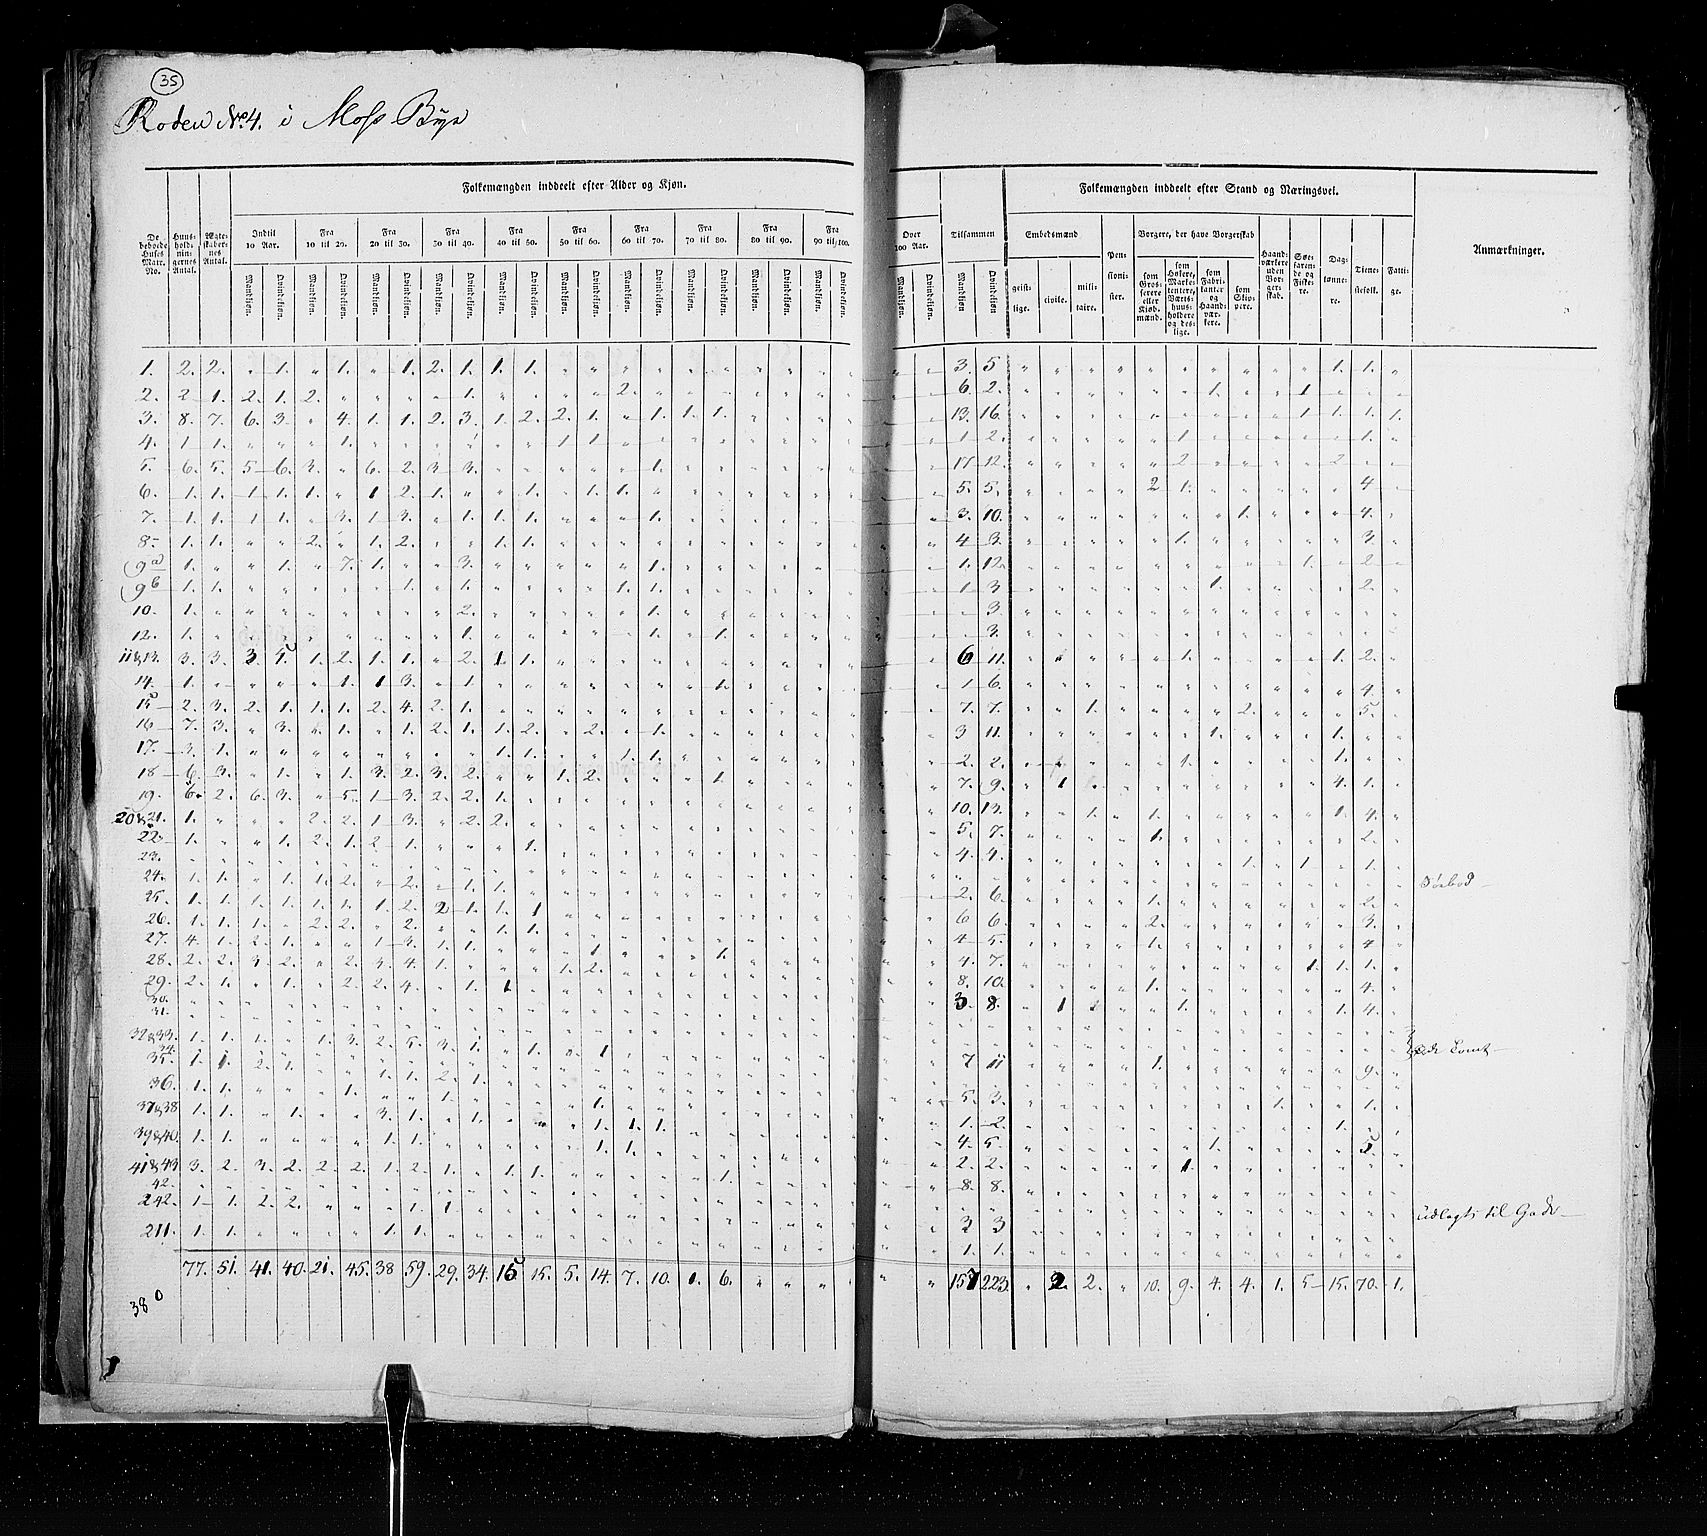 35
Roden No. 4. i Moss Bye
Folkemængden inddeelt efter Alder og Kjøn.
Folkemængden inddeelt efter Stand og Næringsvei.
De beboede Huses Matr. No.
Huusholdningernes Antal.
Ægteskabernes Antal.
Indtil 10 Aar.
Fra 10 til 20.
Fra 20 til 30.
Fra 30 til 40.
Fra 40 til 50.
Fra 50 til 60.
Fra 60 til 70.
Fra 70 til 80.
Fra 80 til 90.
Fra 90 til 100.
Over 100 Aar.
Tilsammen
Mandkjøn. Qvindekjøn.
Embedsmænd
geistlige. civile. militaire.
Pensionister.
Borgere, der have Borgerskab
som Grosserere eller Kjøbmænd.
som Høkere, Marketentere, Værtshuusholdere og deslige.
som Fabrikanter og Haandværkere.
som Skippere.
Haandværkere uden Borgerskab.
Søefarende og Fiskere.
Dagtønnere.
Tienestefolk.
Fattige.
Anmærkninger.
1. 2. 2. " 1. " 1. " 1. 2. 1. 1. 1. 3. 5 1. 1.
2. 2 1. 2. 1. 2. 1. 2. 6. 2. 1. 1
3. 8. 7. 6. 3. " 4. 1. 1. 2. 3. 1. 2. 2. 1. " 1. 1. 1. 13. 16. 1. 1. 1. 1.
4. 1. 1. 1. 1 1 1. 1 2. 1 1.
5. 6. 5. 5 6. 3. " 6. 2. 3 3. 1. 17 12. 2 2
6. 1. 1. 1 1. 1. " 1 2. 1. 1. 1. 1. 5. 5. 2 1. 4
7. 1. 1. 1. 1. " 3. 1. 3. " 1. 1. 1. 1. 3. 10. 1. 4.
8. 1. 1. 2. 1. 2. 1. 1. 4 3. 1. 3.
9a 1. 1. " 7. 1. 3. 1. 1. 12. 1. 2
9b 1. 1. 1. 1. 1. 1. 1 3 1. 2.
10. 1. 2. 1. 3.
12. 1. 1. 1. 1. 3.
11 & 13. 3. 3. 3. 5. 1. 2. 1. 1. " 2. 1 1. 6 11. 1. 1. 2.
14. 1. 1. 1 3. " 1. 1. 1 6. 4.
15 2. 3. 2. 1. 1. 1. 2. 4. 2. 1. 7. 7. 1. 2. 5.
16 7. 3. " 3. " 1. " 1. 2. 1. 1. 2. " 2. " 1. 3 11. 1. 1.
17. 3. 1. 1. 1. 1. 1. 2. 2. 1. 1.
18 6. 3. " 1. " 1. 3. 2. 3. 2. 1. 2. 1. 7. 9. 1 4. 1.
19. 6. 2. 6. 3. " 5. 1 3. 2. 2. 1. 10. 13. 1. 1. 1. 4.
20 & 21. 1. 2. 2. 1 3. " 2. 2. 5. 7. 1. 2.
22. 1. 1. 2. 1. 2. 1. 1. 4. 4. 1. 1 1.
23.
24. 1. 1. " 1. 1. 2. " 2. " 1. 1. 2. 6. 2.
25. 1. 1. 1. 1. 1. 1. 1. 2. 2 1. 1. 1 6 6. 2. 3.
26. 1. 1. 1. " 2. 2. " 2. 1. 1. 4 5. 1. 4
27. 4. 1. 2. 1. 1 3. 1. 1. 1 1. 4. 7. 1. 1. 1.
28. 2. 2. 3. 2. " 2. 3. 4. 1. 1. 2. 8. 10. 1. 4.
29. 2. 1. " 1. " 2. 2. 4. " 1. 1 3 8. 1 1. 1. 4.
30.
31.
32 & 33. 1. 1. 1. " 1. 3. 2. 5. 3. 1. " 1. " 1 7 11 1. 9.
34.
35. 1. 1. 2. 1. 1. 1. 2. 1. 5. 3. 1. 1.
36. 1. 1. 1. 1. 1. 1. 2. 1.
37 & 38 1. 1. " 1. 3. 1. " 1. 1. 1. 1. 4. 5. 1. 5.
39 & 40. 1. 1. 1. 1. 1. 1. 2. 2. 1.
41 & 43 3. 2. 3. 2. 2. 2. 1. 2. 1. " 1. 1. 1. 8. 8.
42.
242. 1 1. 2. 2. 1. 1 3 3
211. 1. 1. 1. 1. 1. 1.
ude Tomt
Udlagts til Gade
77. 51. 41. 40. 21. 45. 38 59. 29. 34. 15 15. 5. 14. 7. 10. 1. 6. 157 223. 2. 2. 10. 9. 4. 4. 1. 5 15. 70. 1.
380